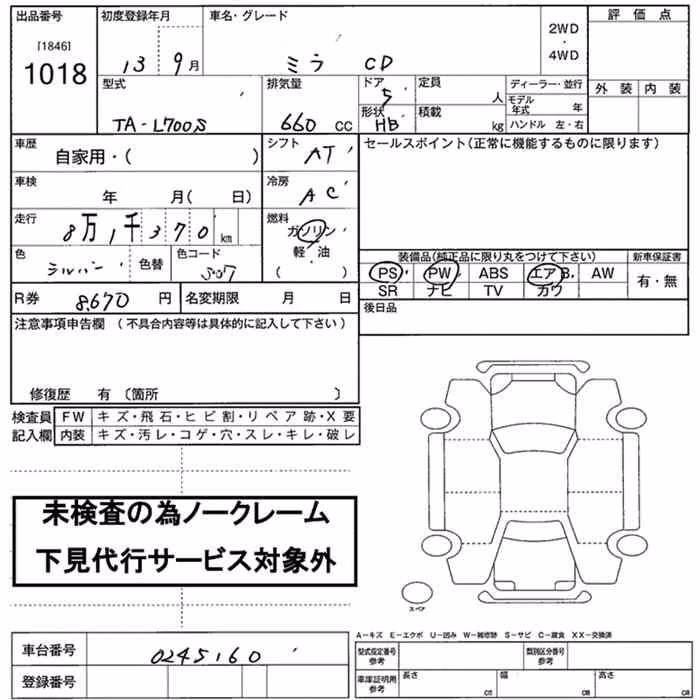 出品番号 初度登録年月 車名・グレード 評価点
[1846]
1018 13 9月 ミラ CD 2WD・4WD
外装 内装
型式 排気量 ドア 定員 ディーラー・並行
TA-L700S 660 CC 5 人 モデル年式 年
形状 積載 ハンドル 左・右
HB kg
車歴 シフト セールスポイント(正常に機能するものに限ります)
自家用・( ) AT
車検 冷房
年 月( 日) AC
走行 燃料
8万1千370 km ガソリン
軽・油
( )
色 色替 色コード 装備品(純正品に限り丸をつけて下さい) 新車保証書
シルバー S07 PS PW ABS エアB. AW 有・無
SR ナビ TV カワ
R券 8,670 円 名変期限 月 日 後日品
注意事項申告欄 (不具合内容等は具体的に記入して下さい)
修復歴 有 〔箇所 〕
検査員 FW キズ・飛石・ヒビ割・リペア跡・X要
記入欄 内装 キズ・汚レ・コゲ・穴・スレ・キレ・破レ
未検査の為ノークレーム
下見代行サービス対象外
スペア
A-キズ E-エクボ U-凹み W-補修跡 S-サビ C-腐食 XX-交換済
車台番号 0245160 型式指定番号 参考 類別区分番号 参考
登録番号 車庫証明用 参考 長さ cm 幅 cm 高さ cm